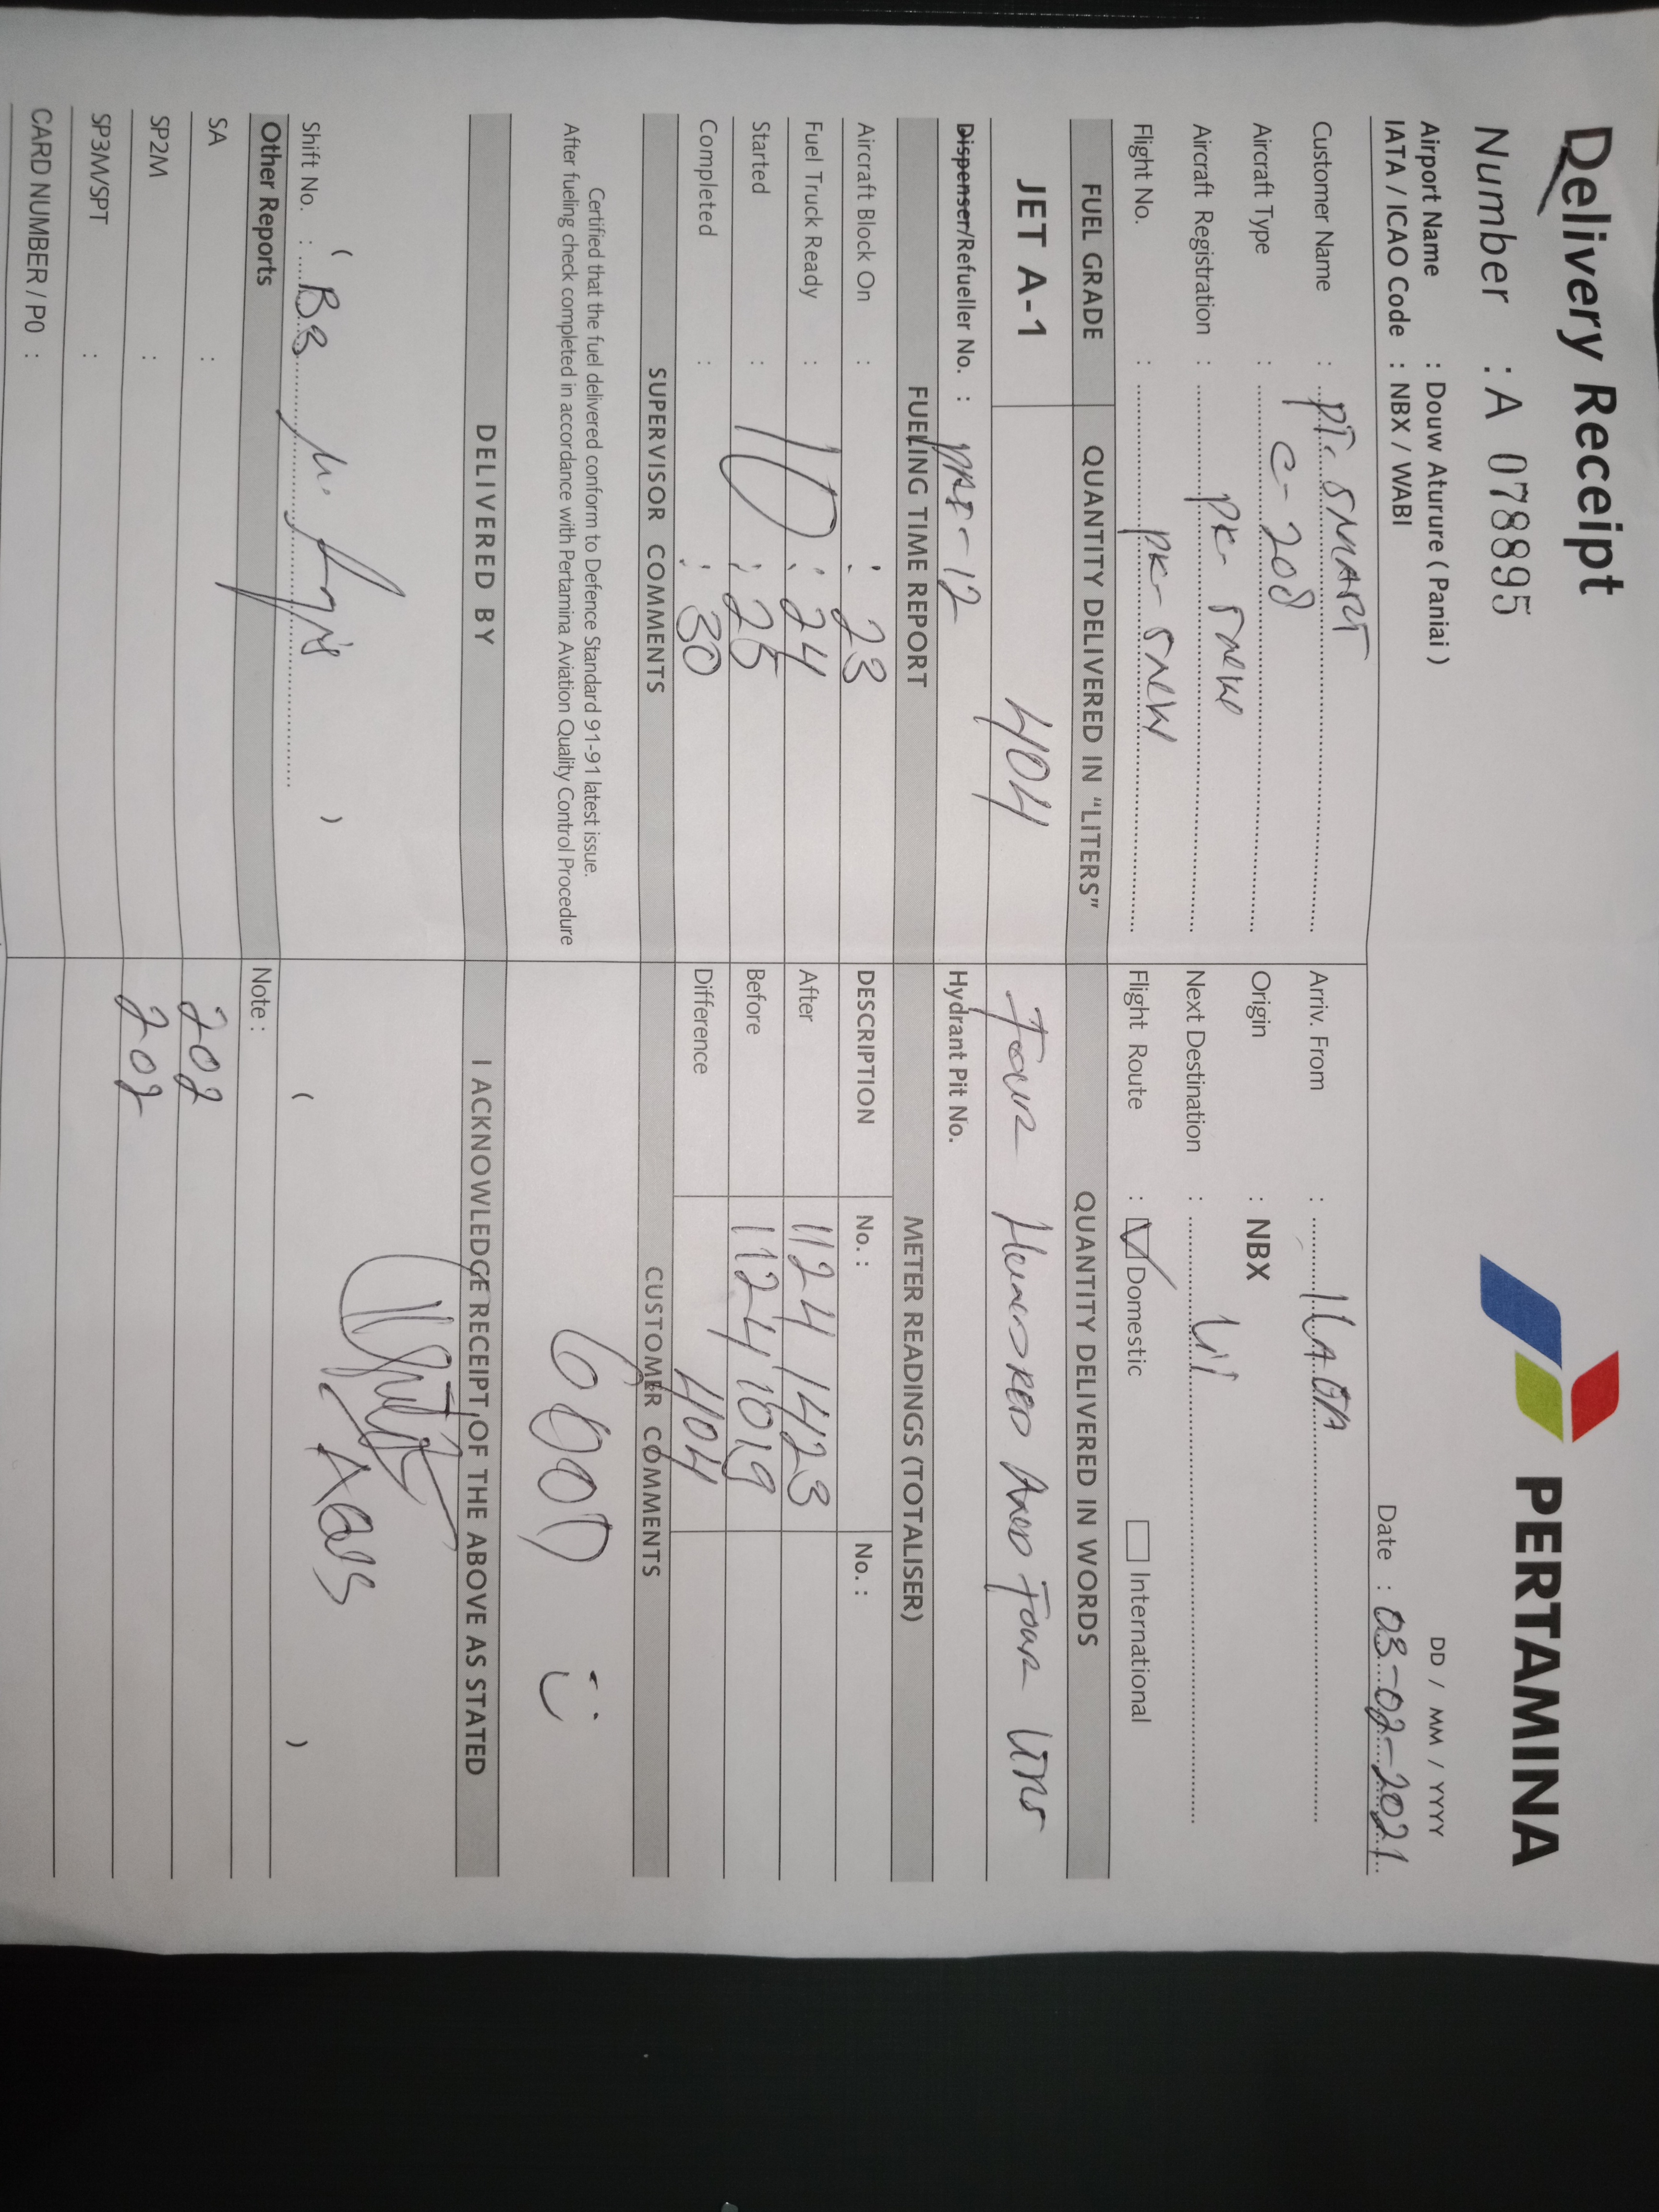 Delivery Receipt
PERTAMINA
Number : A 078895
Airport Name : Douw Aturure ( Paniai )
DD / MM / YYYY
IATA / ICAO Code : NBX / WABI
Date : 03-02-2021
Customer Name : PT. SMART
Arriv. From :
Aircraft Type : C-208
Origin : NBX
Aircraft Registration : PK-
Next Destination :
Flight No. : PK-
Flight Route : Domestic International
FUEL GRADE QUANTITY DELIVERED IN "LITERS" QUANTITY DELIVERED IN WORDS
JET A-1 404 Four Hundred And Four
Dispenser/Refueller No. :
Hydrant Pit No.
FUELING TIME REPORT METER READINGS (TOTALISER)
Aircraft Block On : : 23 DESCRIPTION No. : No. :
Fuel Truck Ready : 10 : 24 After 1124 1423
Started : : 25 Before 1124 1019
Completed : : 30 Difference 404
SUPERVISOR COMMENTS CUSTOMER COMMENTS
Certified that the fuel delivered conform to Defence Standard 91-91 latest issue.
After fueling check completed in accordance with Pertamina Aviation Quality Control Procedure
GOOD :)
DELIVERED BY I ACKNOWLEDGE RECEIPT OF THE ABOVE AS STATED
Shift No. : ( )
( )
Other Reports Note :
SA : 202
SP2M : 202
SP3M/SPT :
CARD NUMBER / PO :